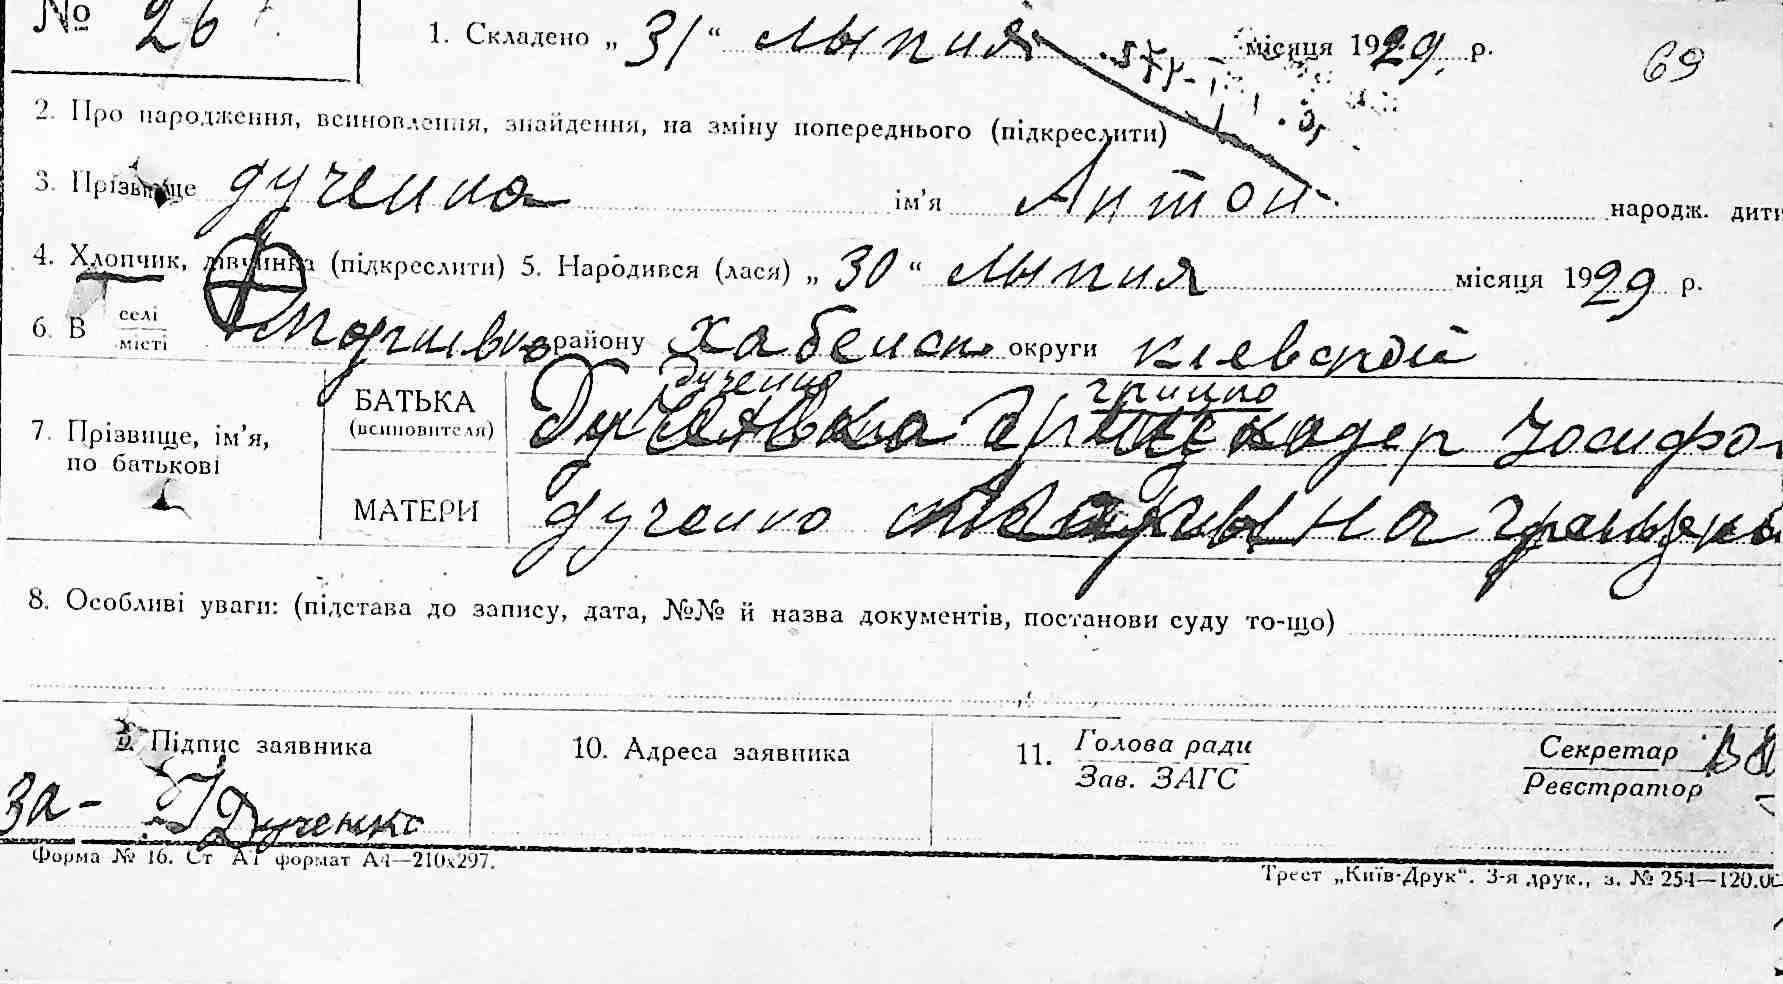 № 26
1. Складено „ 31 “ лыпня місяця 1929 р. 69
2. Про народження, всиновлення, знайдення, на зміну попереднього (підкреслити)
3. Прізвище дученко ім’я Антон народж. дити
4. Хлопчик, дівчинка (підкреслити) 5. Народився (лася) „ 30 “ лыпня місяця 1929 р.
6. В селі місті району Хабенск округи киевской
7. Прізвище, ім’я, по батькові
БАТЬКА (всиновителя) дученко грицко
МАТЕРИ дученко
8. Особливі уваги: (підстава до запису, дата, №№ й назва документів, постанови суду то-що)
9. Підпис заявника 10. Адреса заявника 11. Голова ради Зав. ЗАГС Секретар Реєстратор
за- Дученко
Форма № 16. Ст А1 формат А4—210x297.
Трест „Київ-Друк“. 3-я друк., з. № 254—120.00